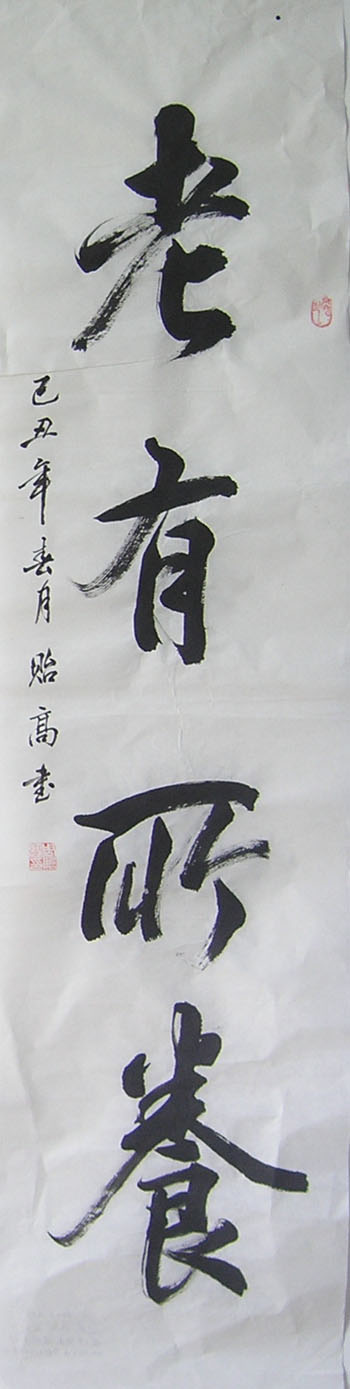 老有所養
己丑年春月貽高書